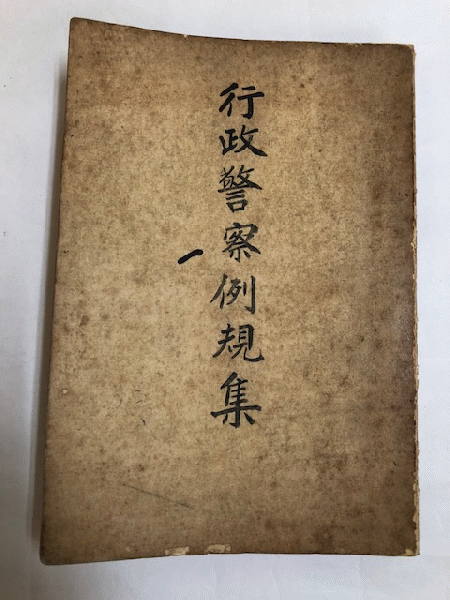 行政警察例規集